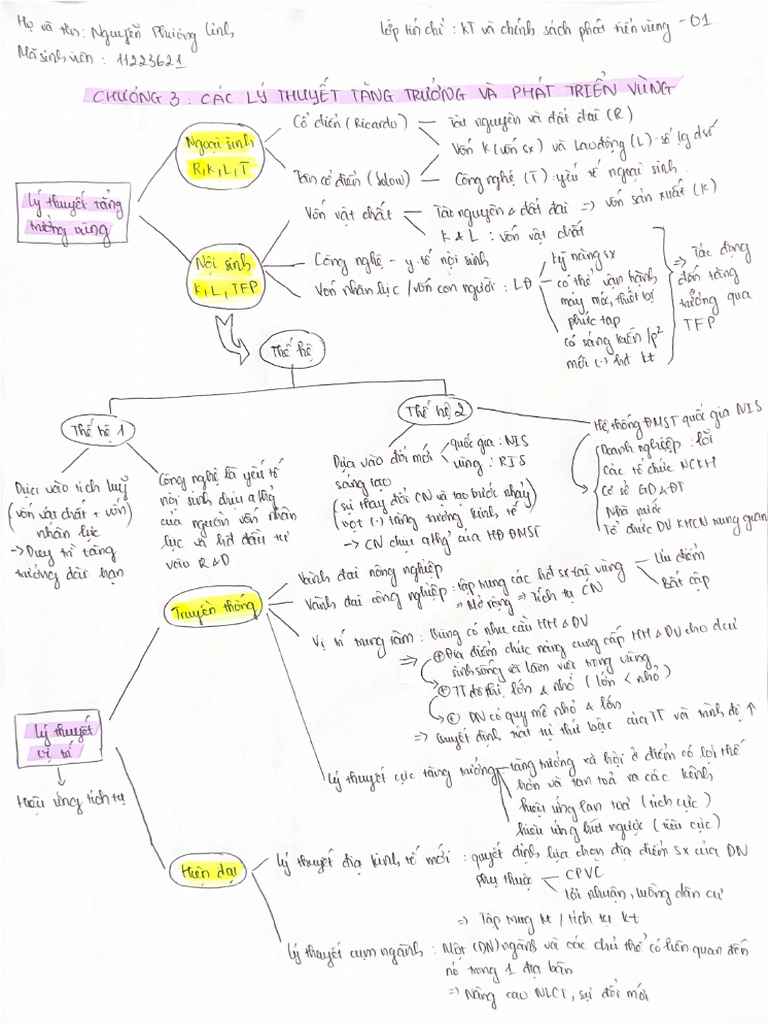 Họ và tên: Nguyễn Phương Linh
Lớp tín chỉ: KT và chính sách phát triển vùng - 01.
Mã sinh viên: 11223621
CHƯƠNG 3: CÁC LÝ THUYẾT TĂNG TRƯỞNG VÀ PHÁT TRIỂN VÙNG
Lý thuyết tăng
trưởng vùng
Ngoại sinh
R,K,L,T
Cổ điển (Ricardo)
Tài nguyên và đất đai (R)
Vốn K (vốn sx) và lao động (L) - số lg dsố
Tân cổ điển (Solow)
Công nghệ (T): yếu tố ngoại sinh.
Nội sinh
K, L, TFP
Vốn vật chất
Tài nguyên & đất đai => vốn sản xuất (K)
K & L: vốn vật chất
Công nghệ - y.tố nội sinh
Vốn nhân lực / vốn con người: LĐ
kỹ năng sx
có thể vận hành
máy móc, thiết bị
phức tạp
có sáng kiến /p²
mới (-) hđ kt
=> Tác động
đến tăng
trưởng qua
TFP
Thế hệ
Thế hệ 1
Dựa vào tích luỹ
(vốn vật chất + vốn
nhân lực)
-> Duy trì tăng
trưởng dài hạn
Công nghệ là yếu tố
nội sinh chịu a/hg
của nguồn vốn nhân
lực và hđ đầu tư
vào R&D
Thế hệ 2
Dựa vào đổi mới
sáng tạo
quốc gia: NIS
vùng: RIS
(sự thay đổi CN và tạo bước nhảy
vọt (-) tăng trưởng kinh tế)
-> CN chịu a/hg của HĐ ĐMST
Hệ thống ĐMST quốc gia NIS
Doanh nghiệp: lõi
Các tổ chức NCKH
Cơ sở GD&ĐT
Nhà nước
Tổ chức DV KHCN trung gian
Lý thuyết
vị trí
Hiệu ứng tích tụ
Truyền thống
Vành đai nông nghiệp
Vành đai công nghiệp: tập trung các hđ sx tại vùng
=> Mở rộng => Tích tụ CN
Ưu điểm
Bất cập
Vị trí trung tâm: Vùng có nhu cầu HH & DV
=> + Địa điểm chức năng cung cấp HH & DV cho dcư
sinh sống và làm việc trong vùng
+ TT đô thị lớn & nhỏ (lớn < nhỏ)
+ DN có quy mô nhỏ & lớn
=> Quyết định trật tự thứ bậc của TT và trình độ ↑
Lý thuyết cực tăng trưởng
tăng trưởng xã hội ở điểm có lợi thế
hơn và lan toả ra các kênh
hiệu ứng lan toả (tích cực)
hiệu ứng hút ngược (tiêu cực)
Hiện đại
Lý thuyết địa kinh tế mới: quyết định lựa chọn địa điểm sx của DN
phụ thuộc
CPVC
lợi nhuận, luồng dân cư
=> Tập trung kt / tích tụ kt
Lý thuyết cụm ngành: Một (DN) ngành và các chủ thể có liên quan đến
nó trong 1 địa bàn
=> Nâng cao NLCT, sự đổi mới